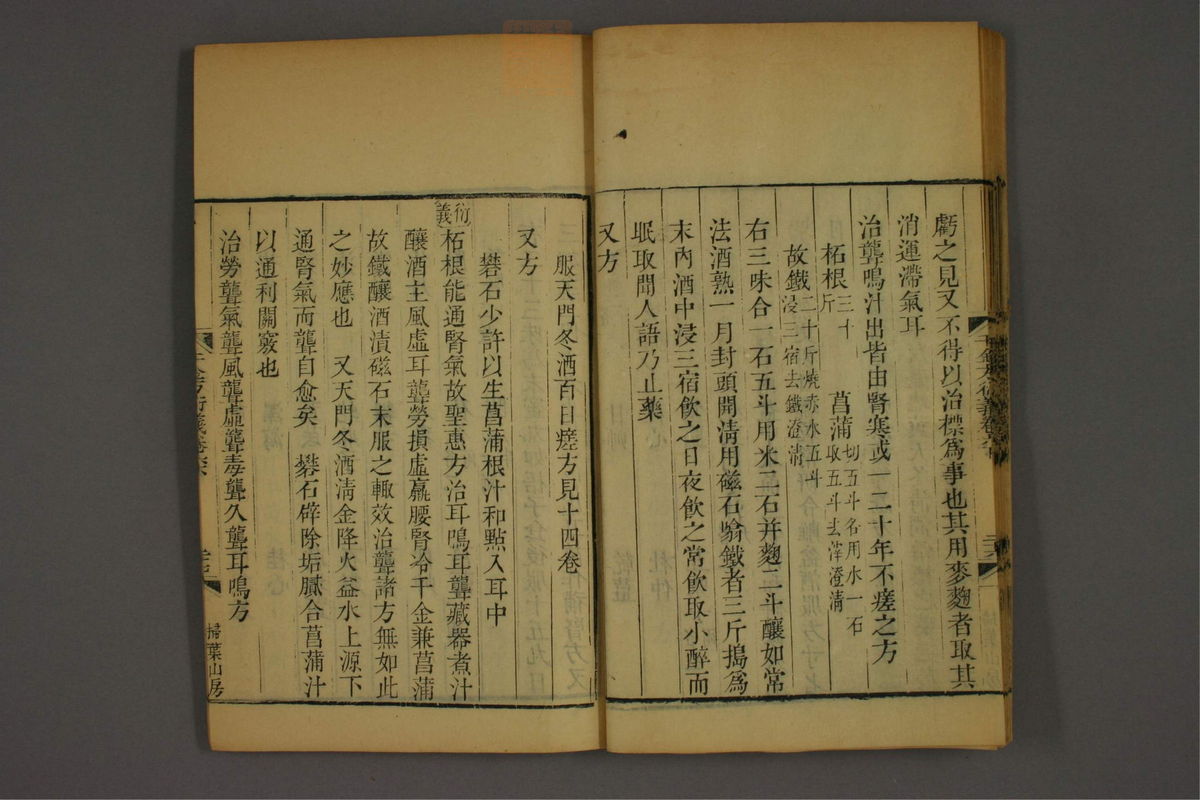 虧之見又不得以治標為事也其用麥麴者取其
消運滯氣耳
治聾鳴汁出皆由腎寒或一二十年不瘥之方
柘根三十斤 菖蒲切五斗各用水一石取五斗去滓澄清
故鐵二十斤燒赤水五斗浸三宿去鐵澄清
右三味合一石五斗用米二石并麴二斗釀如常
法酒熟一月封頭開清用磁石翕鐵者三斤搗為
末內酒中浸三宿飲之日夜飲之常飲取小醉而
眠取聞人語乃止藥
又方
服天門冬酒百日瘥方見十四卷
又方
礬石少許以生菖蒲根汁和點入耳中
衍義
柘根能通腎氣故聖惠方治耳鳴耳聾藏器煮汁
釀酒主風虛耳聾勞損虛羸腰腎冷千金兼菖蒲
故鐵釀酒漬磁石末服之輙效治聾諸方無如此
之妙應也 又天門冬酒清金降火益水上源下
通腎氣而聾自愈矣 礬石辟除垢膩合菖蒲汁
以通利關竅也
治勞聾氣聾風聾虛聾毒聾久聾耳鳴方
千金方衍義卷六
掃葉山房